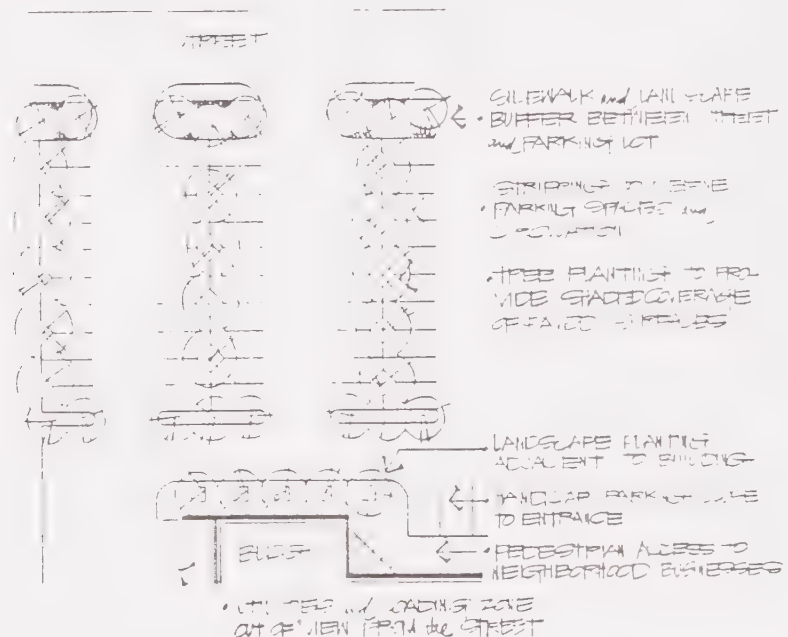 STREET
SIDEWALK and LANDSCAPE
• BUFFER BETWEEN STREET
and PARKING LOT
STRIPPING TO DEFINE
• PARKING SPACES and
CIRCULATION
• TREE PLANTINGS TO PRO-
VIDE SHADED COVERAGE
OF PAVED SURFACES
LANDSCAPE PLANTING
ADJACENT TO BUILDING
• HANDICAP PARKING CLOSE
TO ENTRANCE
BLDG
• PEDESTRIAN ACCESS TO
NEIGHBORHOOD BUSINESSES
• UTILITIES and LOADING ZONE
OUT OF VIEW FROM the STREET